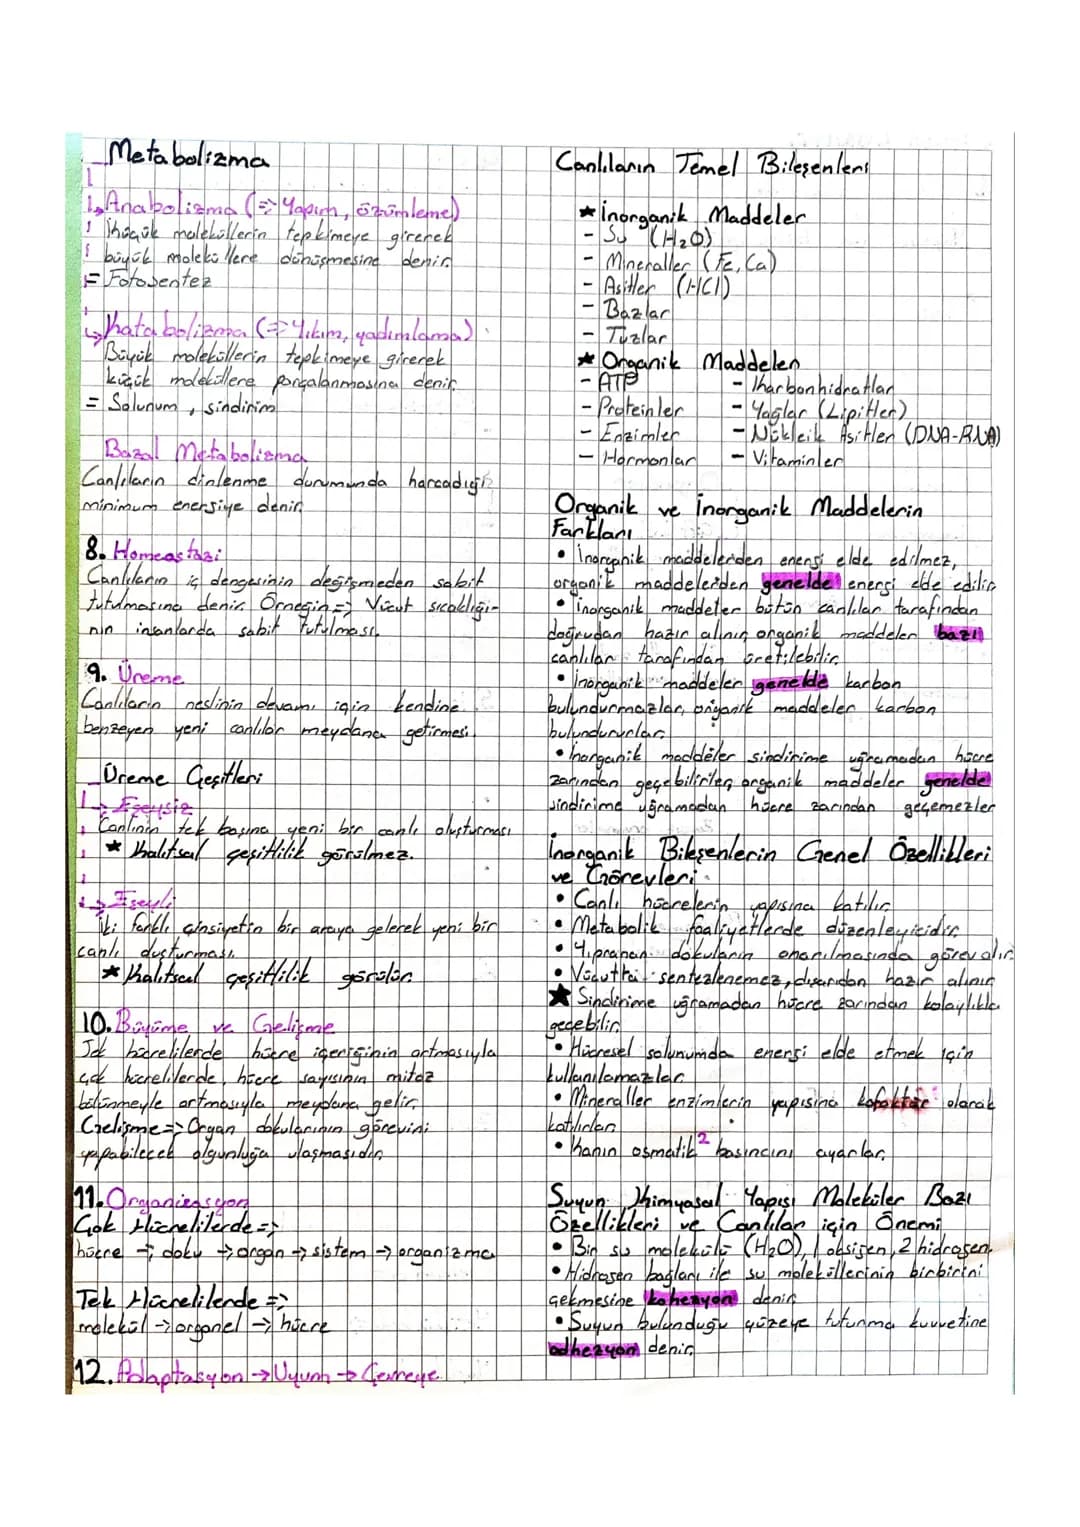 Metabolizma
Anabolizma (=> Yapım, özümleme)
Küçük moleküllerin tepkimeye girerek
büyük moleküllere dönüşmesine denir.
= Fotosentez
Katabolizma (=> Yıkım, yadımlama)
Büyük moleküllerin tepkimeye girerek
küçük moleküllere parçalanmasına denir.
= Solunum, sindirim
Bazal Metabolizma
Canlıların dinlenme durumunda harcadığı
minimum enerjiye denir.
8. Homeostazi
Canlıların iç dengesinin değişmeden sabit
tutulmasına denir. Örneğin => Vücut sıcaklığı-
nın insanlarda sabit tutulması.
9. Üreme
Canlıların neslinin devamı için kendine
benzeyen yeni canlılar meydana getirmesi.
Üreme Çeşitleri
→ Eşeysiz
Canlının tek başına yeni bir canlı oluşturması
★ Kalıtsal çeşitlilik görülmez.
→ Eşeyli
İki farklı cinsiyetin bir araya gelerek yeni bir
canlı oluşturması.
★ Kalıtsal çeşitlilik görülür.
10. Büyüme ve Gelişme
Tek hücrelilerde hücre içeriğinin artmasıyla
çok hücrelilerde, hücre sayısının mitoz
bölünmeyle artmasıyla meydana gelir.
Gelişme => Organ dokularının görevini
yapabilecek olgunluğa ulaşmasıdır.
11. Organizasyon
Çok Hücrelilerde =>
hücre → doku → organ → sistem → organizma
Tek Hücrelilerde =>
molekül → organel → hücre
12. Adaptasyon → Uyum → Çevreye
Canlıların Temel Bileşenleri
★ İnorganik Maddeler
- Su (H₂O)
- Mineraller (Fe, Ca)
- Asitler (HCl)
- Bazlar
- Tuzlar
★ Organik Maddeler
- ATP - Karbonhidratlar
- Proteinler - Yağlar (Lipitler)
- Enzimler - Nükleik Asitler (DNA-RNA)
- Hormonlar - Vitaminler
Organik ve İnorganik Maddelerin
Farkları
• İnorganik maddelerden enerji elde edilmez,
organik maddelerden genelde enerji elde edilir.
• İnorganik maddeler bütün canlılar tarafından
doğrudan hazır alınır, organik maddeler bazı
canlılar tarafından üretilebilir.
• İnorganik maddeler genelde karbon
bulundurmazlar, organik maddeler karbon
bulundururlar.
• İnorganik maddeler sindirime uğramadan hücre
zarından geçebilirler, organik maddeler genelde
sindirime uğramadan hücre zarından geçemezler
İnorganik Bileşenlerin Genel Özellikleri
ve Görevleri
• Canlı hücrelerin yapısına katılır.
• Metabolik faaliyetlerde düzenleyicidir.
• Yıpranan dokuların onarılmasında görev alır.
• Vücutta sentezlenemez, dışarıdan hazır alınır.
★ Sindirime uğramadan hücre zarından kolaylıkla
geçebilir.
• Hücresel solunumda enerji elde etmek için
kullanılamazlar.
• Mineraller enzimlerin yapısına kofaktör olarak
katılırlar.
• Kanın osmatik² basıncını ayarlar.
Suyun Kimyasal Yapısı Moleküler Bazı
Özellikleri ve Canlılar için Önemi
• Bir su molekülü (H₂O), 1 oksijen, 2 hidrojen.
• Hidrojen bağları ile su moleküllerinin birbirini
çekmesine kohezyon denir.
• Suyun bulunduğu yüzeye tutunma kuvvetine
adhezyon denir.